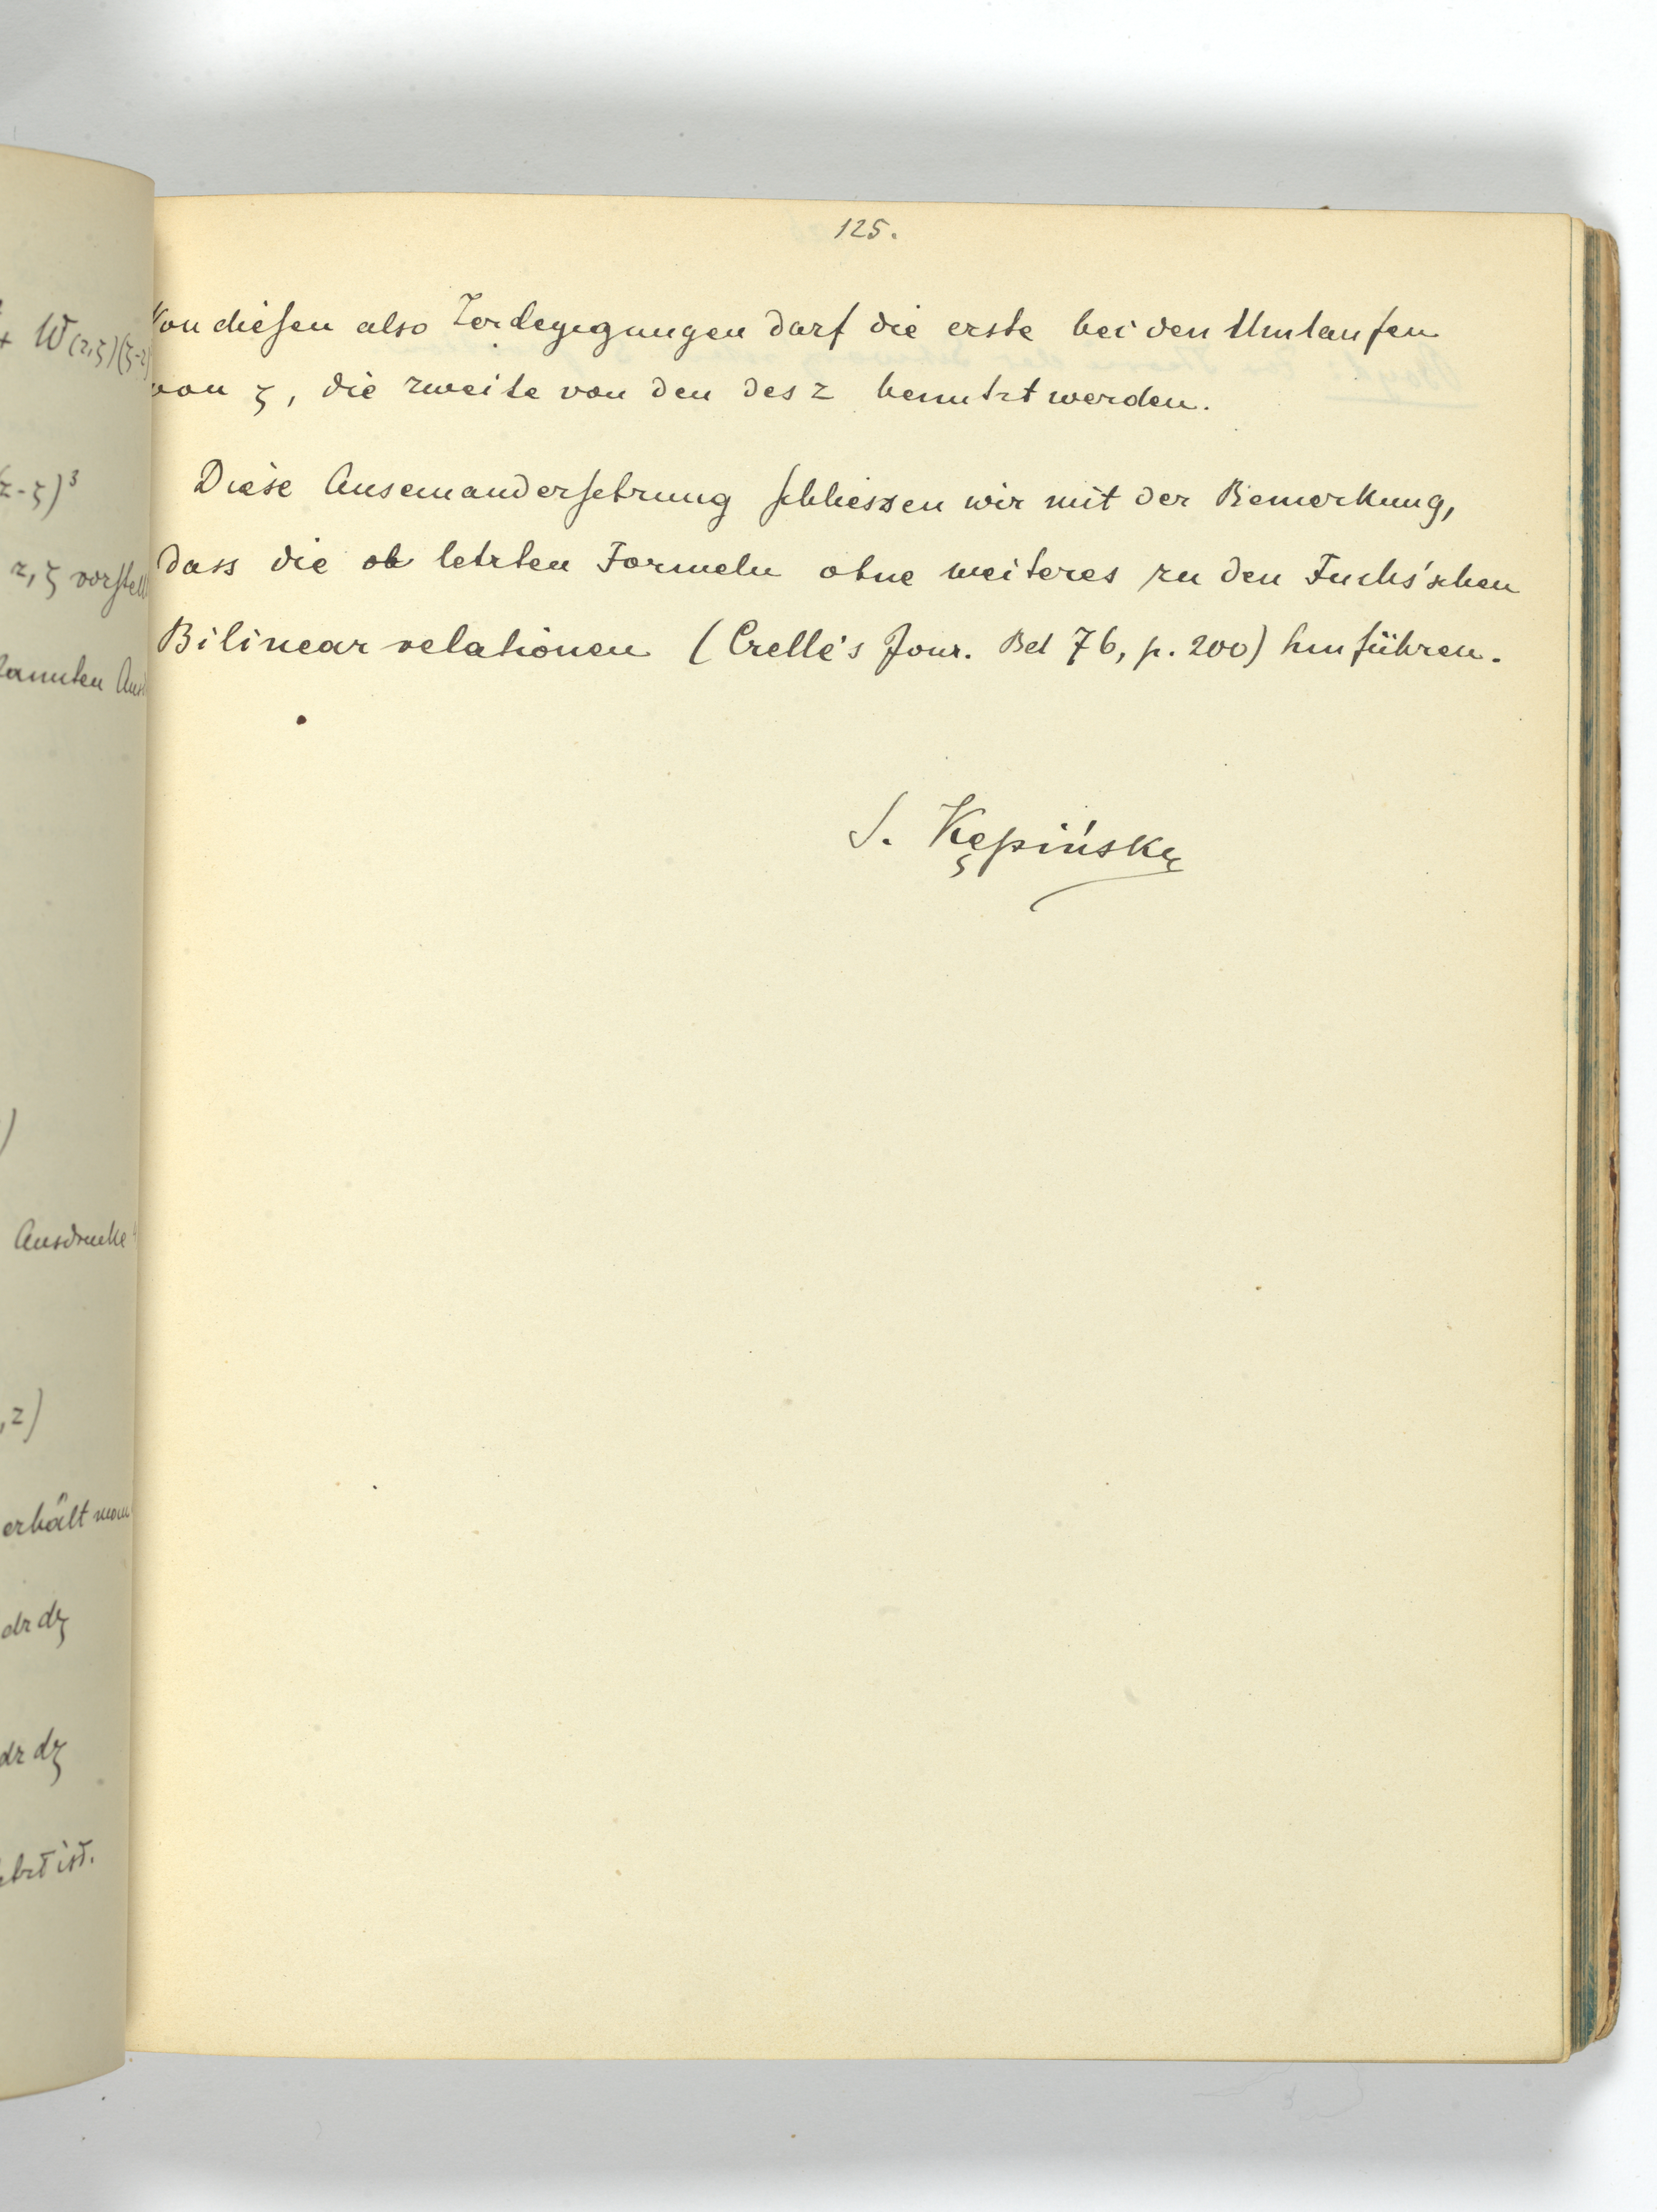 + W(z,ζ)(ζ-z)
(z-ζ)³
z, ζ vorstell
Ausdrucke
,z)
erhält man
dz dζ
dz dζ
ist.
125.
Von diesen also darf die erste bei den Umlaufen
von ζ, die zweite von den des z benutzt werden.
Diese Auseinandersetzung schliessen wir mit der Bemerkung,
dass die ob letzten Formeln ohne weiteres zu den Fuchs'schen
Bilinearrelationen (Crelle's Jour. Bd 76, p. 200) hinführen.
S. Kępiński